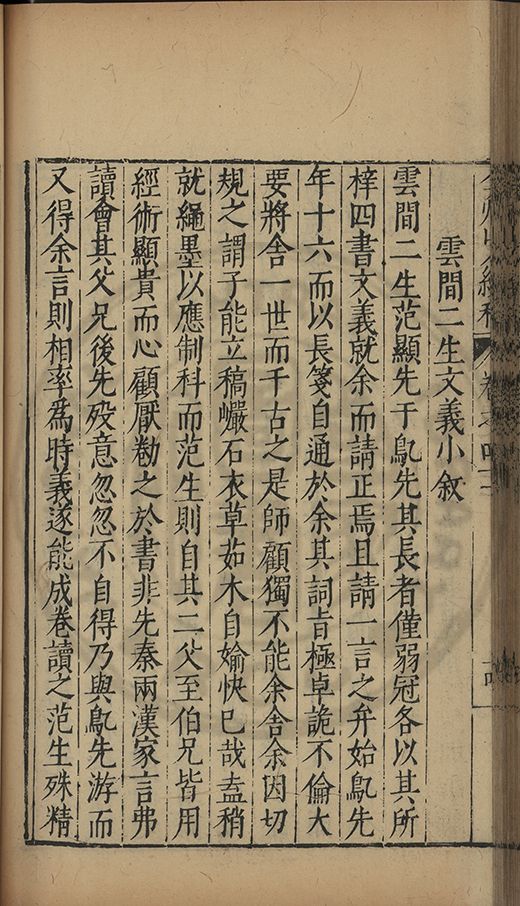 弇州山人續稿 卷之四十
雲間二生文義小敘
雲間二生范顯先于鳧先其長者僅弱冠各以其所
梓四書文義就余而請正焉且請一言之弁始鳧先
年十六而以長箋自通於余其詞旨極卓詭不倫大
要將舍一世而千古之是師顧獨不能余舍余因切
規之謂子能立稿巗石衣草茹木自媮快已哉盍稍
就繩墨以應制科而范生則自其二父至伯兄皆用
經術顯貴而心顧厭勌之於書非先秦兩漢家言弗
讀會其父兄後先歿意忽忽不自得乃與鳧先游而
又得余言則相率爲時義遂能成卷讀之范生殊精